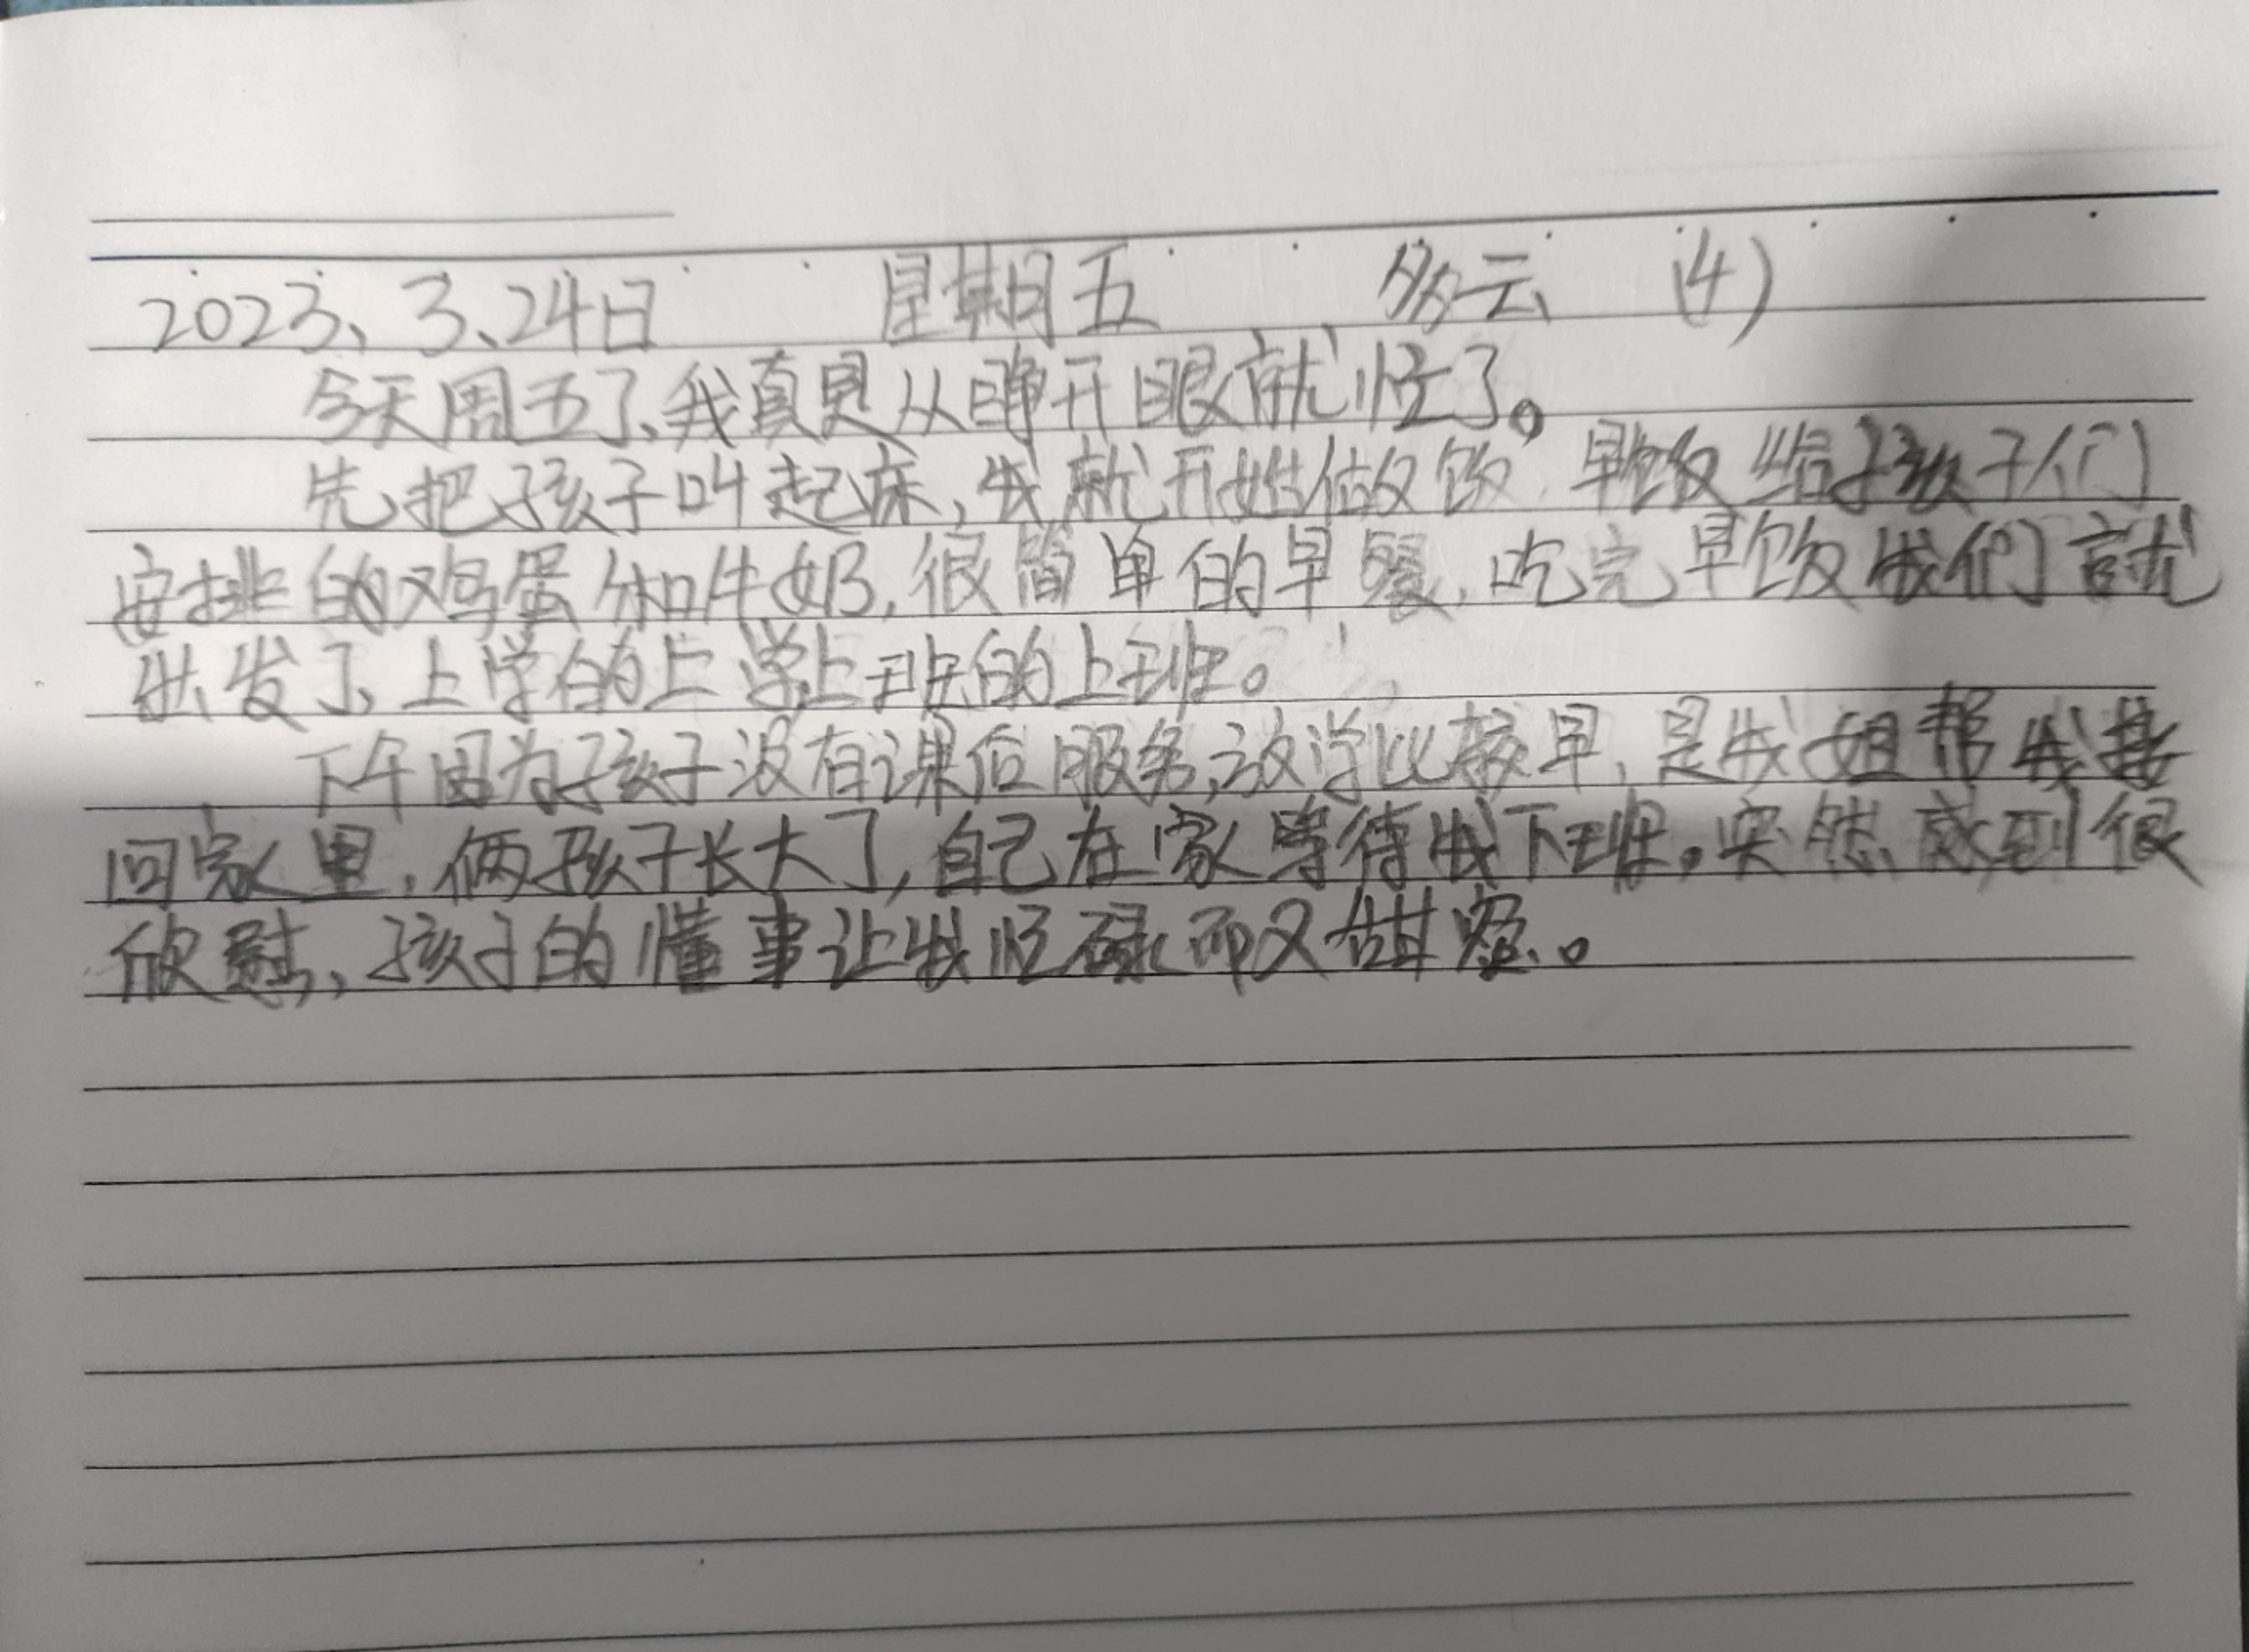 2023、3、24日 星期五 多云 (4)
今天周五了、我真是从睁开眼就忙了。
先把孩子叫起床,我就开始做饭.早饭给孩子们
安排的鸡蛋和牛奶,很简单的早餐,吃完早饭我们就
出发了、上学的上学上班的上班。
下午因为孩子没有课后服务,放学比较早,是我姐帮我接
回家里,俩孩子长大了,自己在家等待我下班。突然感到很
欣慰、孩子的懂事让我忙碌而又甜蜜。